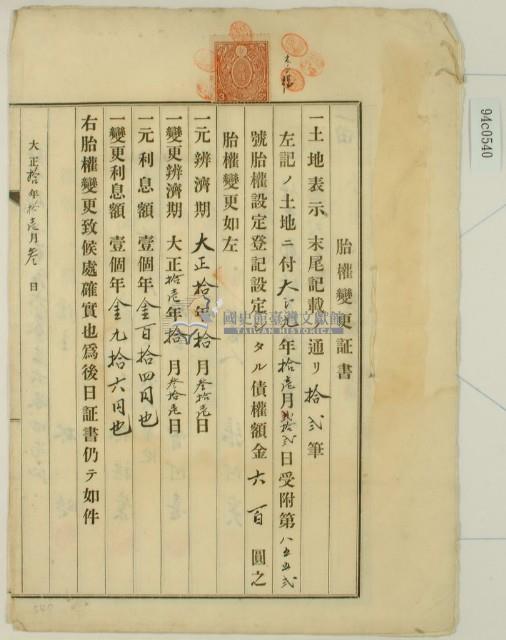 胎權變更証書
一土地表示 末尾記載ノ通リ 拾弍筆
左記ノ土地ニ付大正九年拾壱月弍拾弍日受附第八五五弍
號胎權設定登記設定シタル債權額金六百圓之
胎權變更如左
一元辨濟期 大正拾年拾月叁拾壱日
一變更辨濟期 大正拾壱年拾月叁拾壱日
一元利息額 壹個年金百拾四円也
一變更利息額 壹個年金九拾六円也
右胎權變更致候處確實也爲後日証書仍テ如件
大正拾年拾壱月叁日
國史館臺灣文獻館
TAIWAN HISTORICA
94c0540